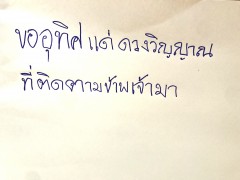 ขออุทิศ แด่ ดวงวิญญาณ
ที่ติดตามข้าพเจ้ามา